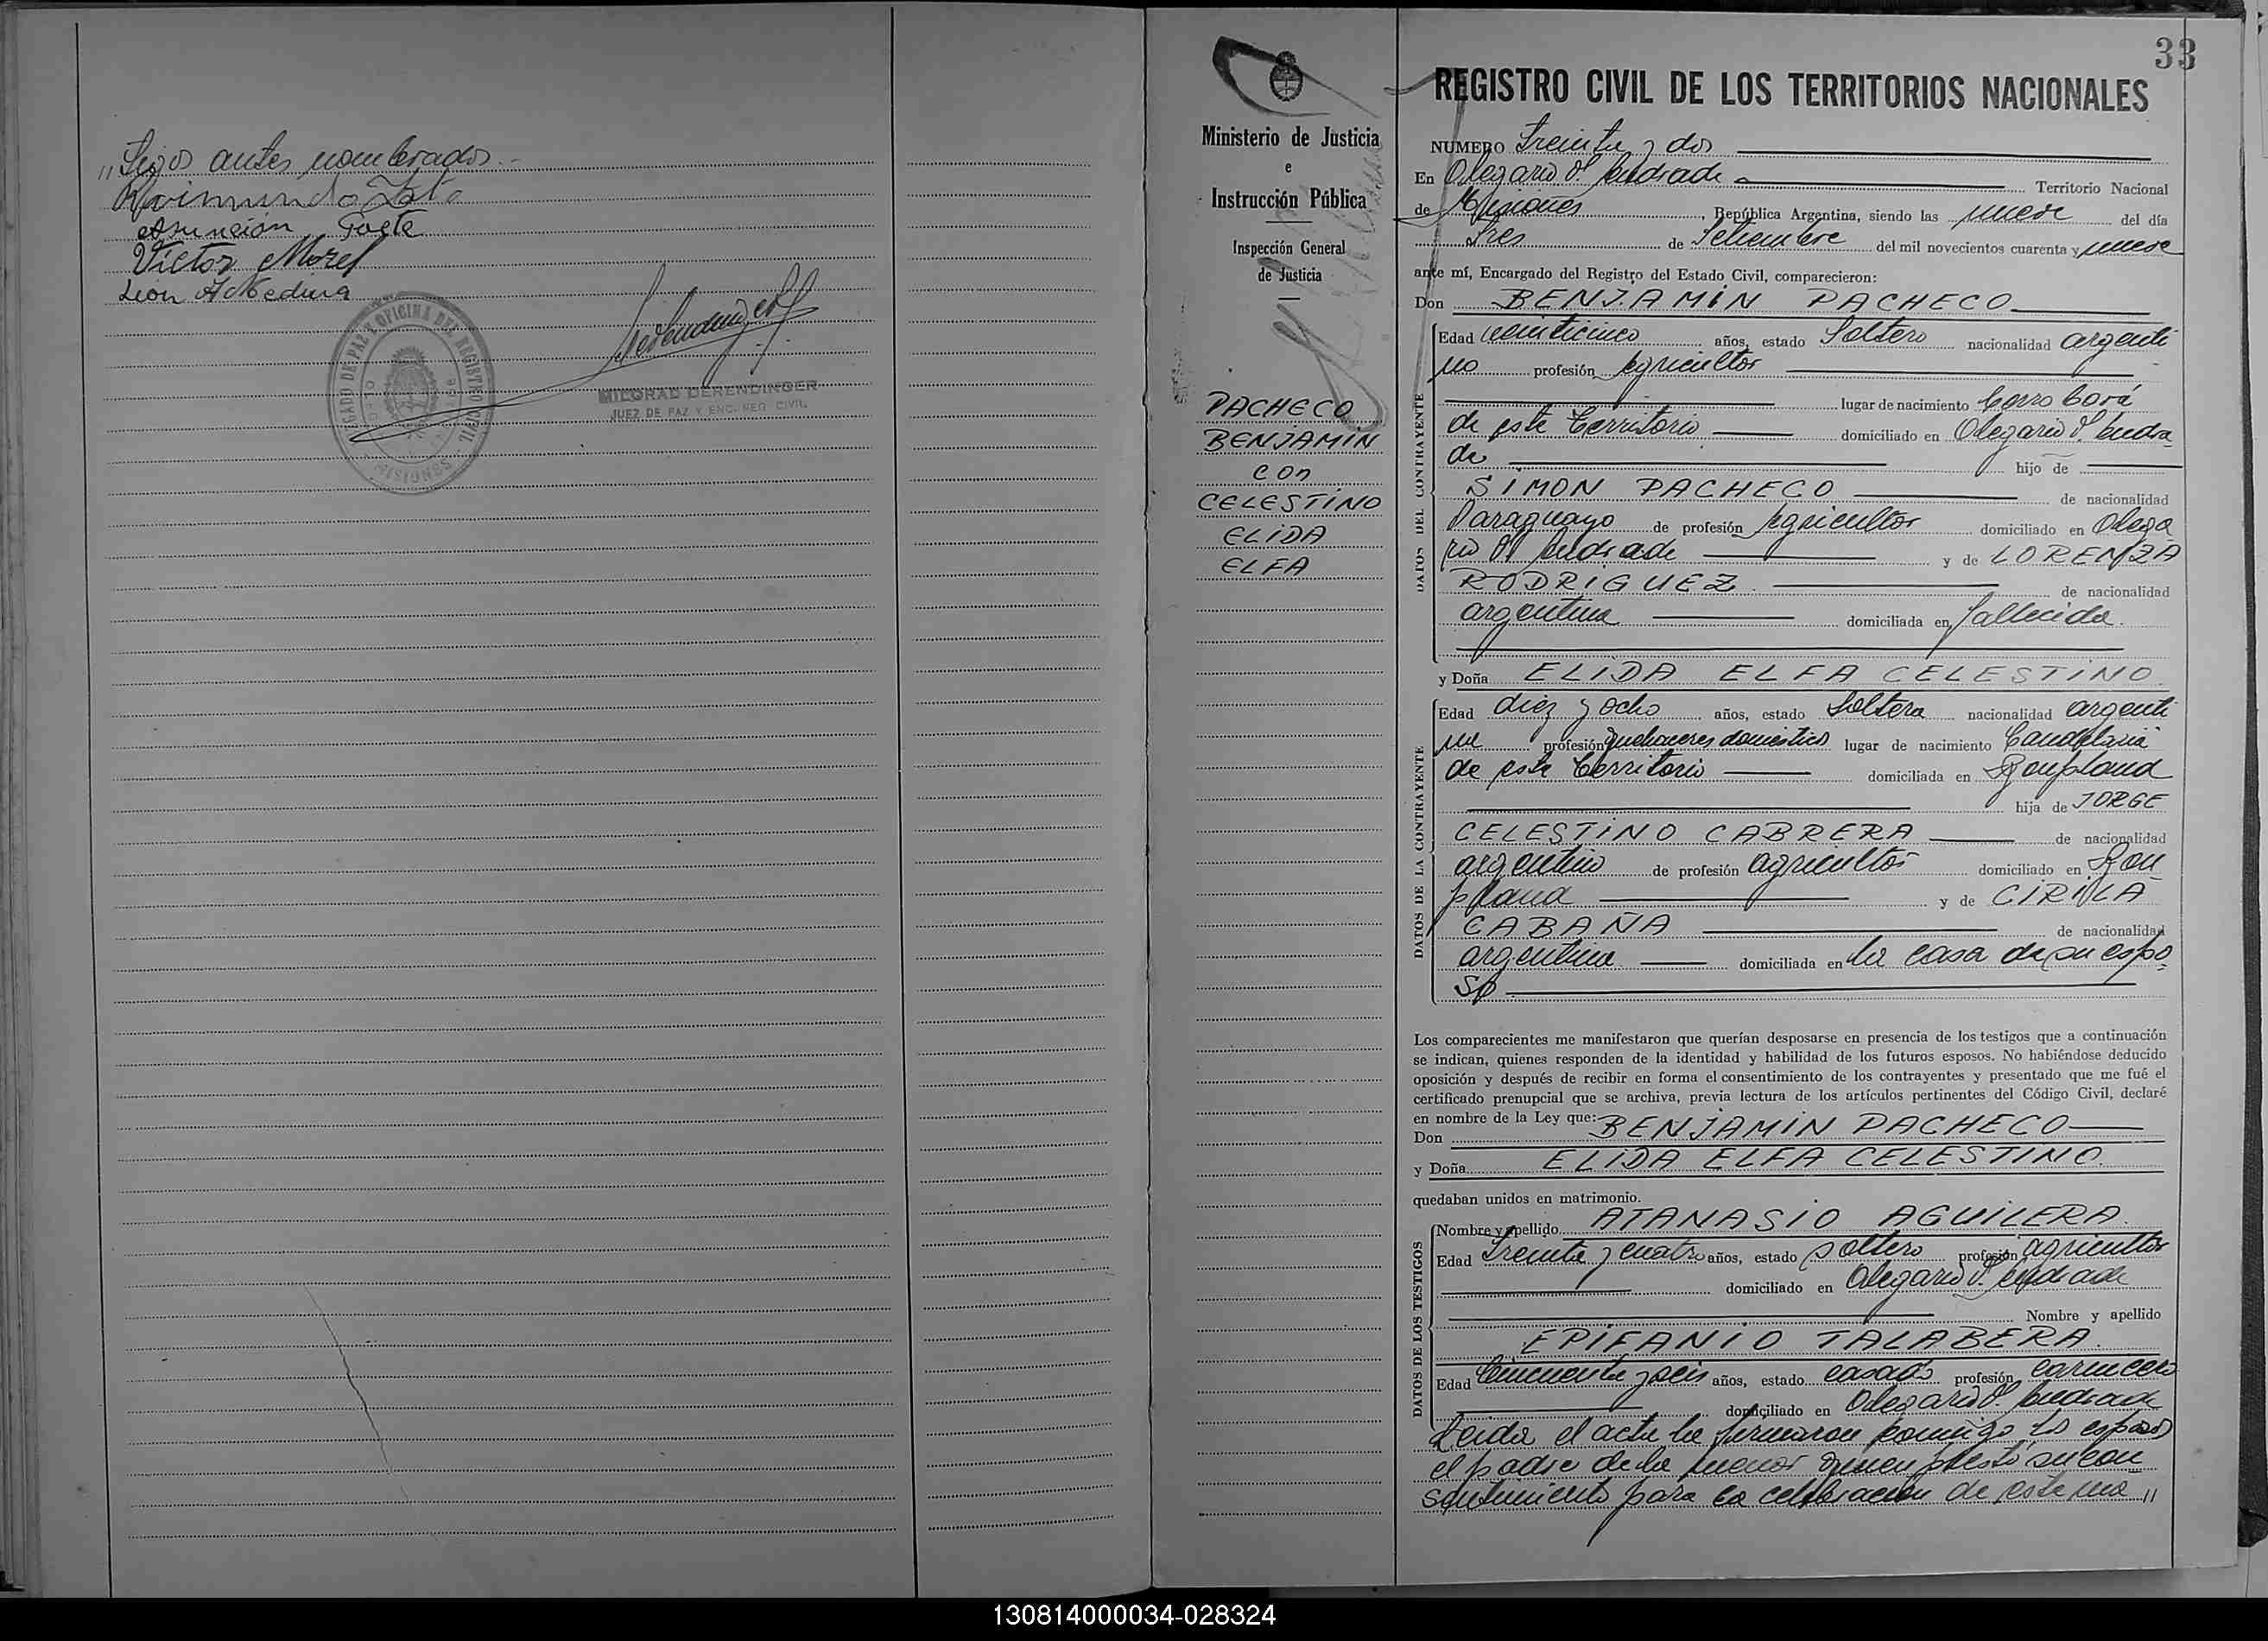 "tigos antes nombrados.-
Raimundo
Asunción Goete
Victor Morel
León A Medina
JUZGADO DE PAZ Y OFICINA DEL REGISTRO CIVIL
MISIONES
MILGRAD DERENDINGER
JUEZ DE PAZ Y ENC. REG. CIVIL
33
Ministerio de Justicia
e
Instrucción Pública
Inspección General
de Justicia
PACHECO
BENJAMIN
con
CELESTINO
ELIDA
ELFA
REGISTRO CIVIL DE LOS TERRITORIOS NACIONALES
NUMERO Treinta y dos
En Olegario V. Andrade Territorio Nacional
de Misiones, República Argentina, siendo las nueve del día
tres de Setiembre del mil novecientos cuarenta y nueve
ante mí, Encargado del Registro del Estado Civil, comparecieron:
Don BENJAMIN PACHECO
DATOS DEL CONTRAYENTE
Edad veinticinco años, estado Soltero nacionalidad argenti
no profesión agricultor
lugar de nacimiento Cerro Corá
de este Territorio domiciliado en Olegario V. Andra
de hijo de
SIMON PACHECO de nacionalidad
Paraguayo de profesión agricultor domiciliado en Olega
rio V. Andrade y de LORENZA
RODRIGUEZ de nacionalidad
argentina domiciliada en fallecida.
y Doña ELIDA ELFA CELESTINO.
DATOS DE LA CONTRAYENTE
Edad diez y ocho años, estado Soltera nacionalidad argenti
na profesión quehaceres domésticos lugar de nacimiento Candelaria
de este Territorio domiciliada en Bonpland
hija de JORGE
CELESTINO CABRERA de nacionalidad
argentino de profesión agricultor domiciliado en Bon
pland y de CIRILA
CABAÑA de nacionalidad
argentina domiciliada en la casa de su espo
so
Los comparecientes me manifestaron que querían desposarse en presencia de los testigos que a continuación
se indican, quienes responden de la identidad y habilidad de los futuros esposos. No habiéndose deducido
oposición y después de recibir en forma el consentimiento de los contrayentes y presentado que me fué el
certificado prenupcial que se archiva, previa lectura de los artículos pertinentes del Código Civil, declaré
en nombre de la Ley que:
Don BENJAMIN PACHECO
y Doña ELIDA ELFA CELESTINO.
quedaban unidos en matrimonio.
DATOS DE LOS TESTIGOS
Nombre y apellido ATANASIO AGUILERA.
Edad Treinta y cuatro años, estado soltero profesión agricultor
domiciliado en Olegario V. Andrade
Nombre y apellido
EPIFANIO TALABERA.
Edad Cincuenta y seis años, estado casado profesión carnicero
domiciliado en Olegario V. Andrade
Leida el acta la firmaron conmigo los esposos
el padre de la menor quien prestó su con
sentimiento para la celebración de este ma "
130814000034-028324